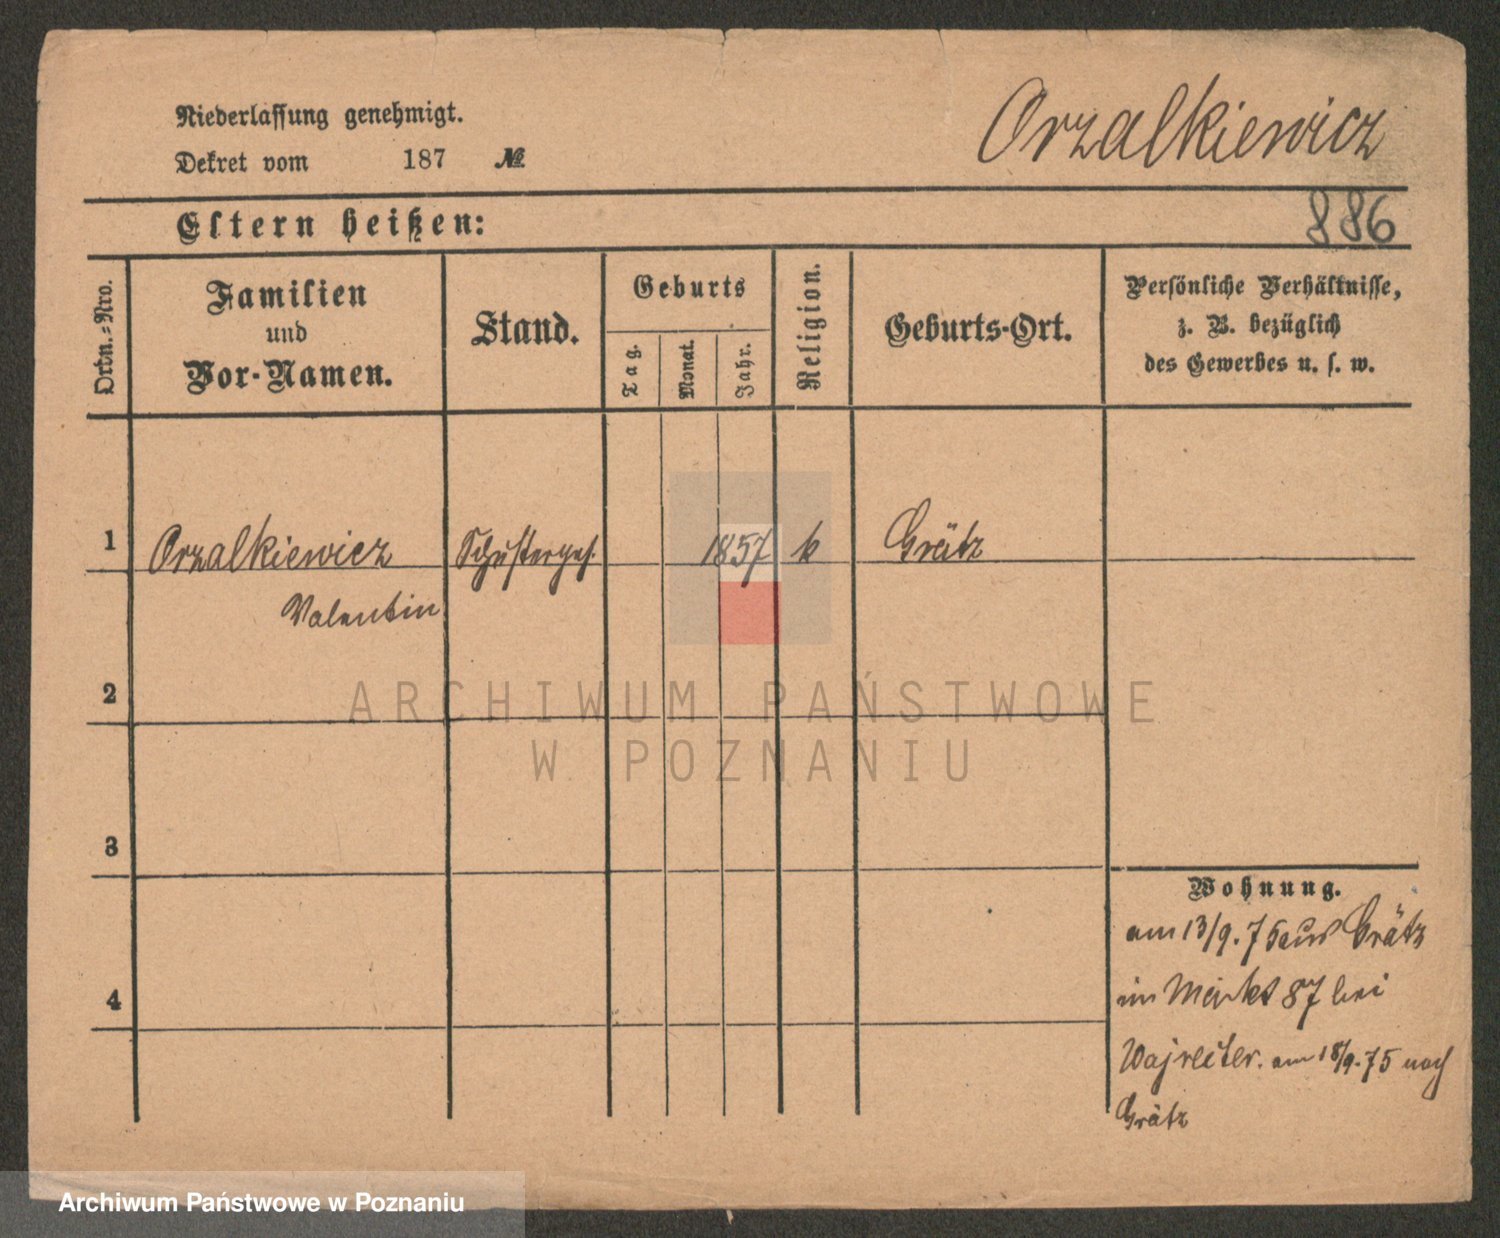 Niederlassung genehmigt.
Orzalkiewicz
Dekret vom 187 №
Eltern heißen:
886
Ordn.-Nro.
Familien
und
Vor-Namen.
Stand.
Geburts
Tag.
Monat.
Jahr.
Religion.
Geburts-Ort.
Persönliche Verhältnisse,
z. B. bezüglich
des Gewerbes u. s. w.
1 Orzalkiewicz Schusterges. 1857 k Grätz
Valentin
2
ARCHIWUM PAŃSTWOWE
W POZNANIU
3
Wohnung.
am 13/9. 75 aus Grätz
im Markt 87 bei
4
Wajreiter. am 18/9. 75 nach
Grätz
Archiwum Państwowe w Poznaniu